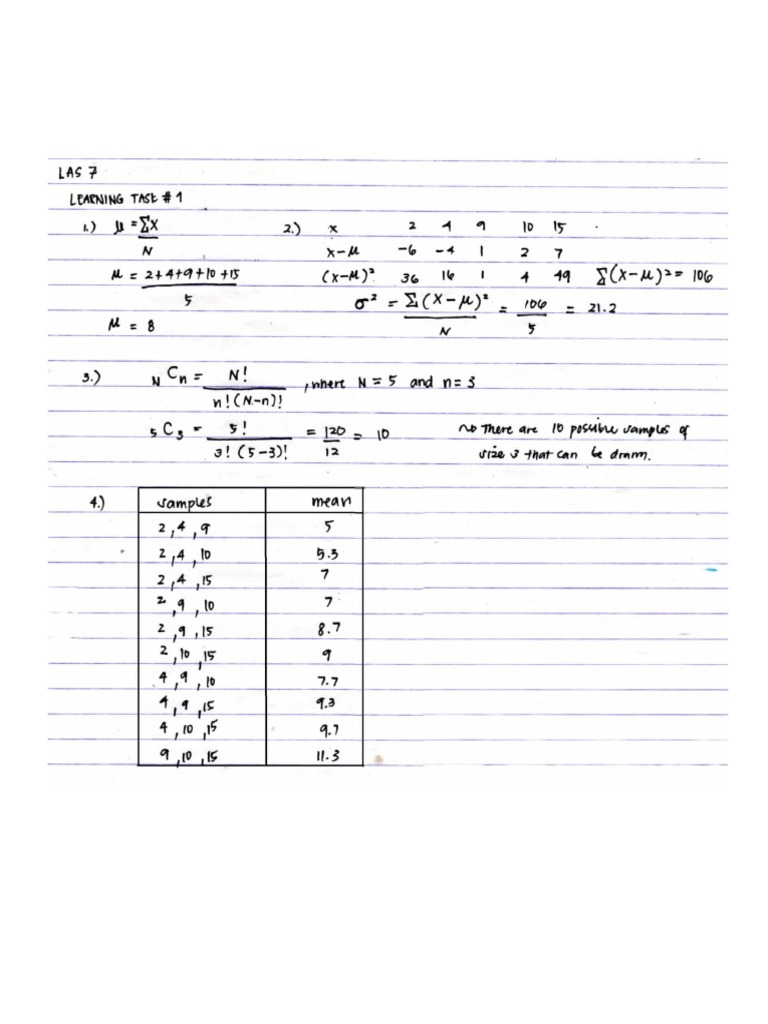 LAS 7
LEARNING TASK #1
1.) μ = ΣX
N
μ = 2+4+9+10+15
5
μ = 8
2.) x 2 4 9 10 15
x-μ -6 -4 1 2 7
(x-μ)² 36 16 1 4 49 Σ(x-μ)² = 106
σ² = Σ(x-μ)² = 106 = 21.2
N 5
3.) NCn = N! , where N = 5 and n = 3
n!(N-n)!
5C3 = 5! = 120 = 10 ~> There are 10 possible samples of
3!(5-3)! 12 size 3 that can be drawn.
4.) samples mean
2, 4, 9 5
2, 4, 10 5.3
2, 4, 15 7
2, 9, 10 7
2, 9, 15 8.7
2, 10, 15 9
4, 9, 10 7.7
4, 9, 15 9.3
4, 10, 15 9.7
9, 10, 15 11.3